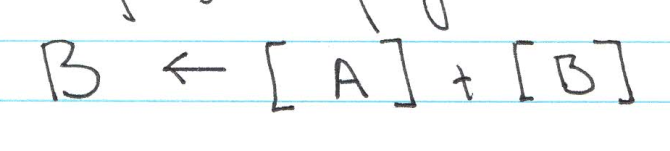 B ← [A] + [B]